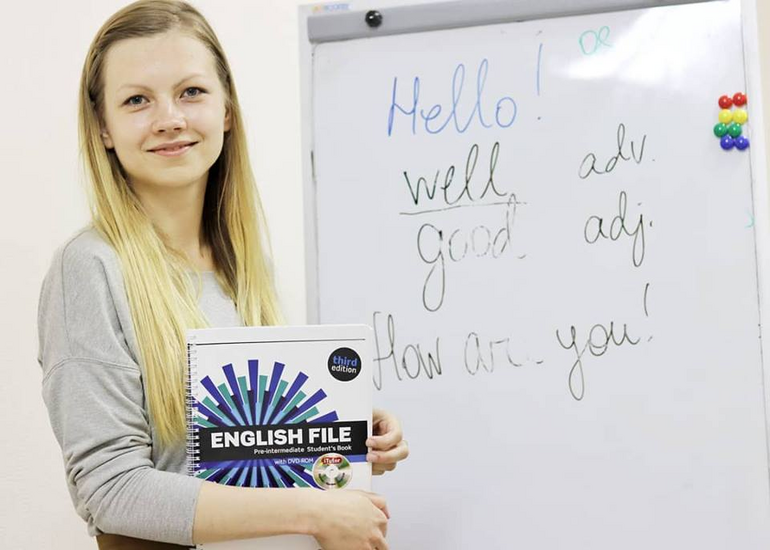 Hello!
well adv.
good adj.
How are you!
third
edition
ENGLISH FILE
Pre-intermediate Student's Book
with DVD-ROM
iTutor